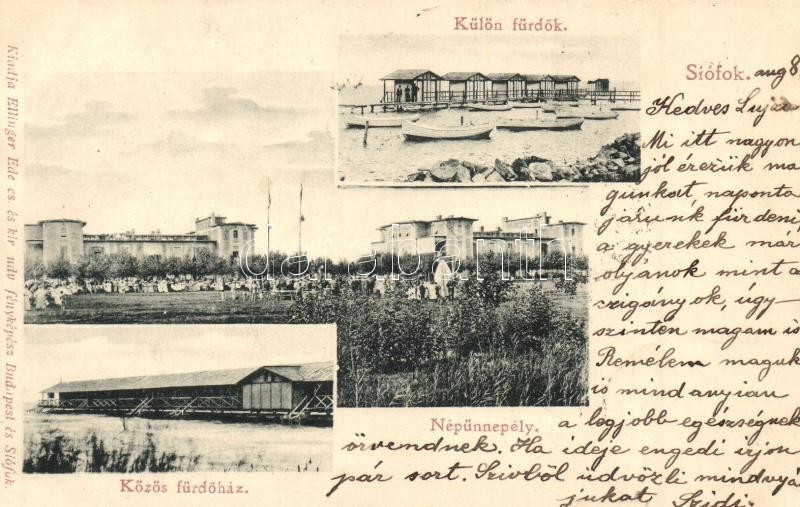 Külön fürdők.
Siófok. aug 8
Kedves Lujza
Mi itt nagyon
jól érezük ma
gunkat, naponta
járunk fürdeni,
a gyerekek már
olyanok mint a
czigányok, úgy-
szintén magam is
Remélem maguk
is mindanyian
a legjobb egészségnek
örvendnek. Ha ideje engedi irjon
pár sort. Szivből üdvözli mindnyá
jukat Szidi.
Népünnepély.
Közös fürdőház.
Kiadja Ellinger Ede cs. és kir. udv. fényképész Budapest és Siófok.
darabanth